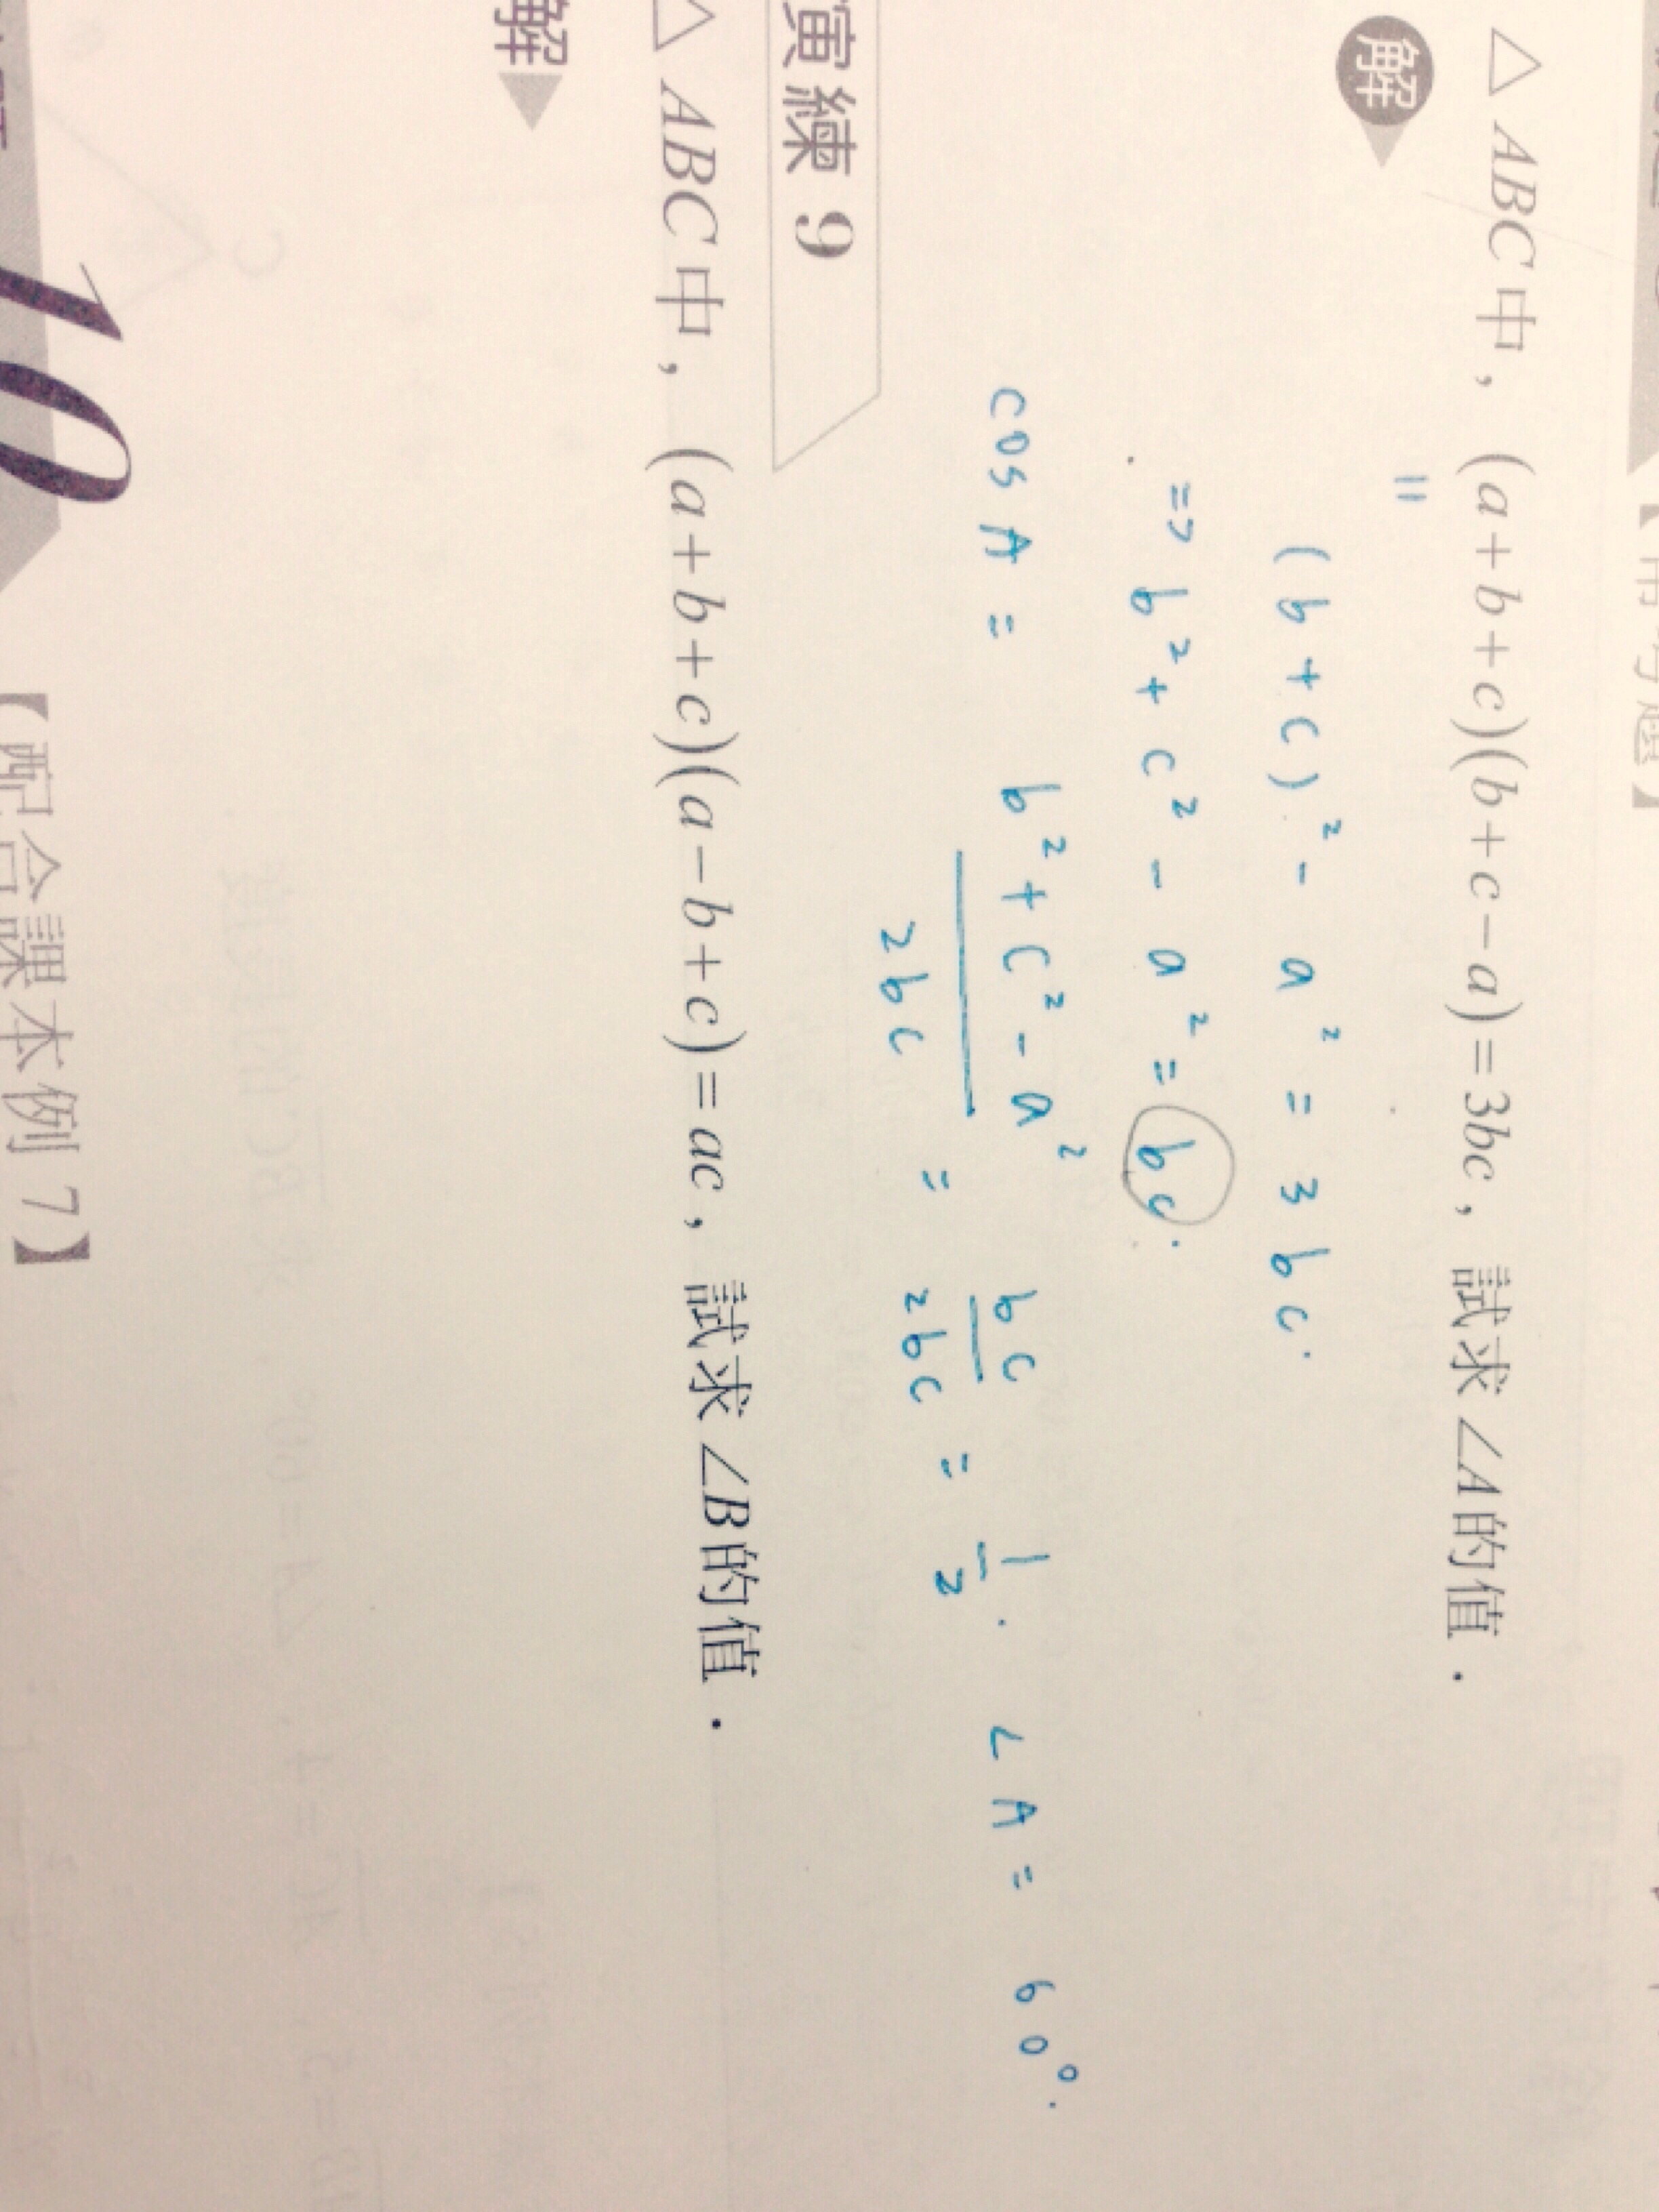 △ABC中，(a+b+c)(b+c−a)=3bc，試求∠A的值．
解
=
(b+c)²-a²=3bc.
=> b²+c²-a²=bc.
cos A = b²+c²-a² / 2bc = bc / 2bc = 1/2. ∠A = 60°.
練 9
△ABC中，(a+b+c)(a−b+c)=ac，試求∠B的值．
解
10
【配合課本例 7】